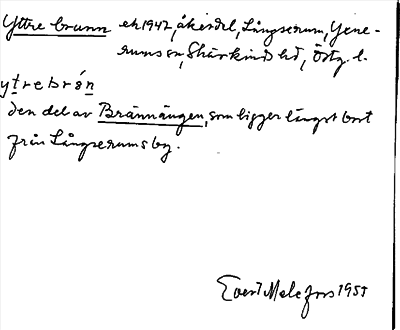 Yttre brunn ek 1947, åkerdel, Långserum, Gene-
rums sn, Skärkinds hd, Östg. l.
ytrebrøn
den del av Brännängen, som ligger längst bort
från Långserums by.
Evert Melefors 1955